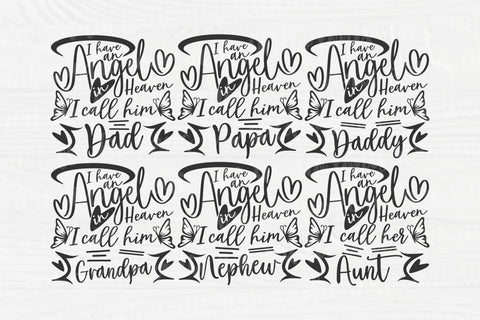 I have
an
Angel
in Heaven
I call him
Dad
I have
an
Angel
in Heaven
I call him
Papa
I have
an
Angel
in Heaven
I call him
Daddy
I have
an
Angel
in Heaven
I call him
Grandpa
I have
an
Angel
in Heaven
I call him
Nephew
I have
an
Angel
in Heaven
I call her
Aunt